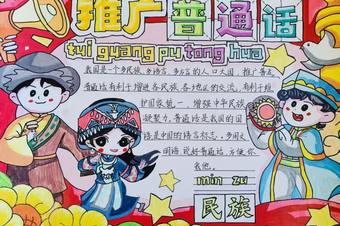 推广普通话
tui guang pu tong hua
我国是一个多民族、多语言、多方言的人口大国,推广普及
普通话有利于增进各民族、各地区的交流,有利于维
护国家统一,增强中华民族
凝聚力。普通话是我国的国
语是中国的语言标志,多用文
明语,说好普通话,方便你
我他。
min zu
民族